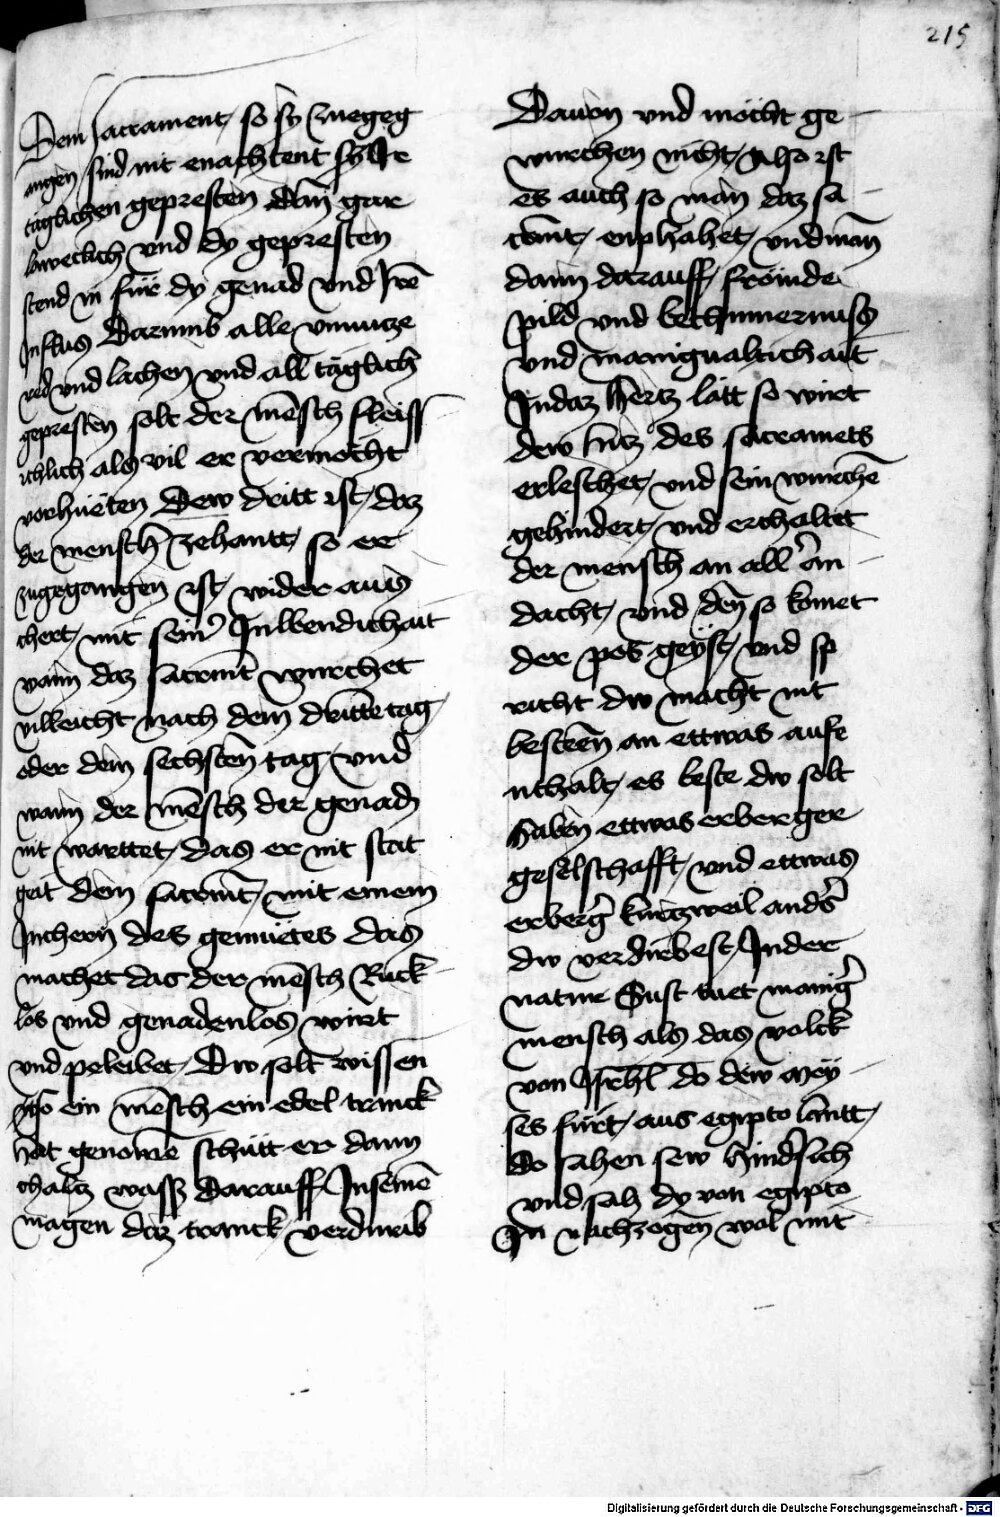 215
Dem sacrament so sy zuegeg
angen sind nit enachtent sölhe
täglichen gepresten dan gar
und dy gepresten
stend in für dy genad und Ire
Influs Darumb alle unnutze
red und lachen und all täglich
gepresten solt der mēsch fleiss
ichlich als vil er vermöcht
vorhüeten Dew dritt ist daz
der mensch zehantt so er
zugegangen ist wider aus
chert mit seiner Inwendichait
wann daz sacramēt wurchet
villeicht nach dem dritte tag
oder dem sechsten tag und
wann der mēsch der genadn
nit warttet das er nit stat
geit dem sacramēt mit einem
Incheren des gemüetes das
machet das der mēsch Ruck
los und genadenlos wirt
und peleibet Dw solt wissen
so ein mēsch ein edel tranck
hat genomē schütt er dann
chaltz wass darauff In seinē
magen daz tranck verdurib
Dauon und möcht ge
wurchen nicht Also ist
es auch so man daz sa
cramēt enphahet und man
dann darauff frömde
pild und bechumernuss
und manigualtichait
In daz hertz lätt so wirt
dew hitz des sacramēts
erleschet und sein wurchē
gehindert und erchaltet
der mensch an all an
dacht und den so komet
der pös geyst und sp
richt dw macht nit
besteen an ettwas aufe
nthalt es beste dw solt
haben ettwas erberger
geselschafft und ettwas
erberger kurtzweil anders
dw verdirbest In der
natur Sust tuet maniger
mensch als das volck
von Israhel do dew Moy
ses fürt aus egipto lanntt
do sahen sew hindersich
und sah dy von egipto
In nachzogen wol mit
Digitalisierung gefördert durch die Deutsche Forschungsgemeinschaft - DFG